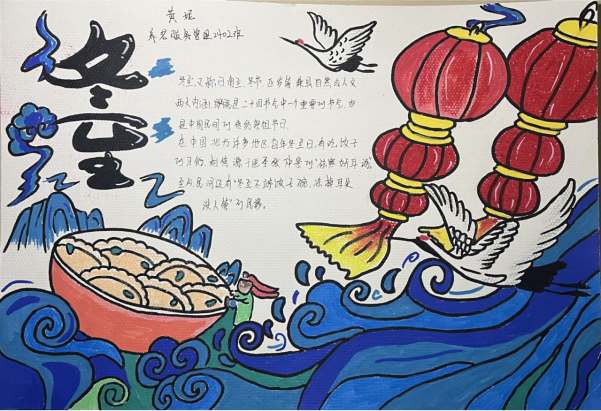 冬至
黄娅
养老服务管理2402班
冬至又称日南至、冬节、亚岁等,兼具自然与人文
两大内涵,既是二十四节气中一个重要的节气,也
是中国民间的传统祭祖节日.
在中国北方许多地区,每年冬至日,有吃饺子
的习俗,起源于医圣张仲景的“祛寒娇耳汤”
至今民间还有“冬至不端饺子碗,冻掉耳朵
没人管”的民谣.